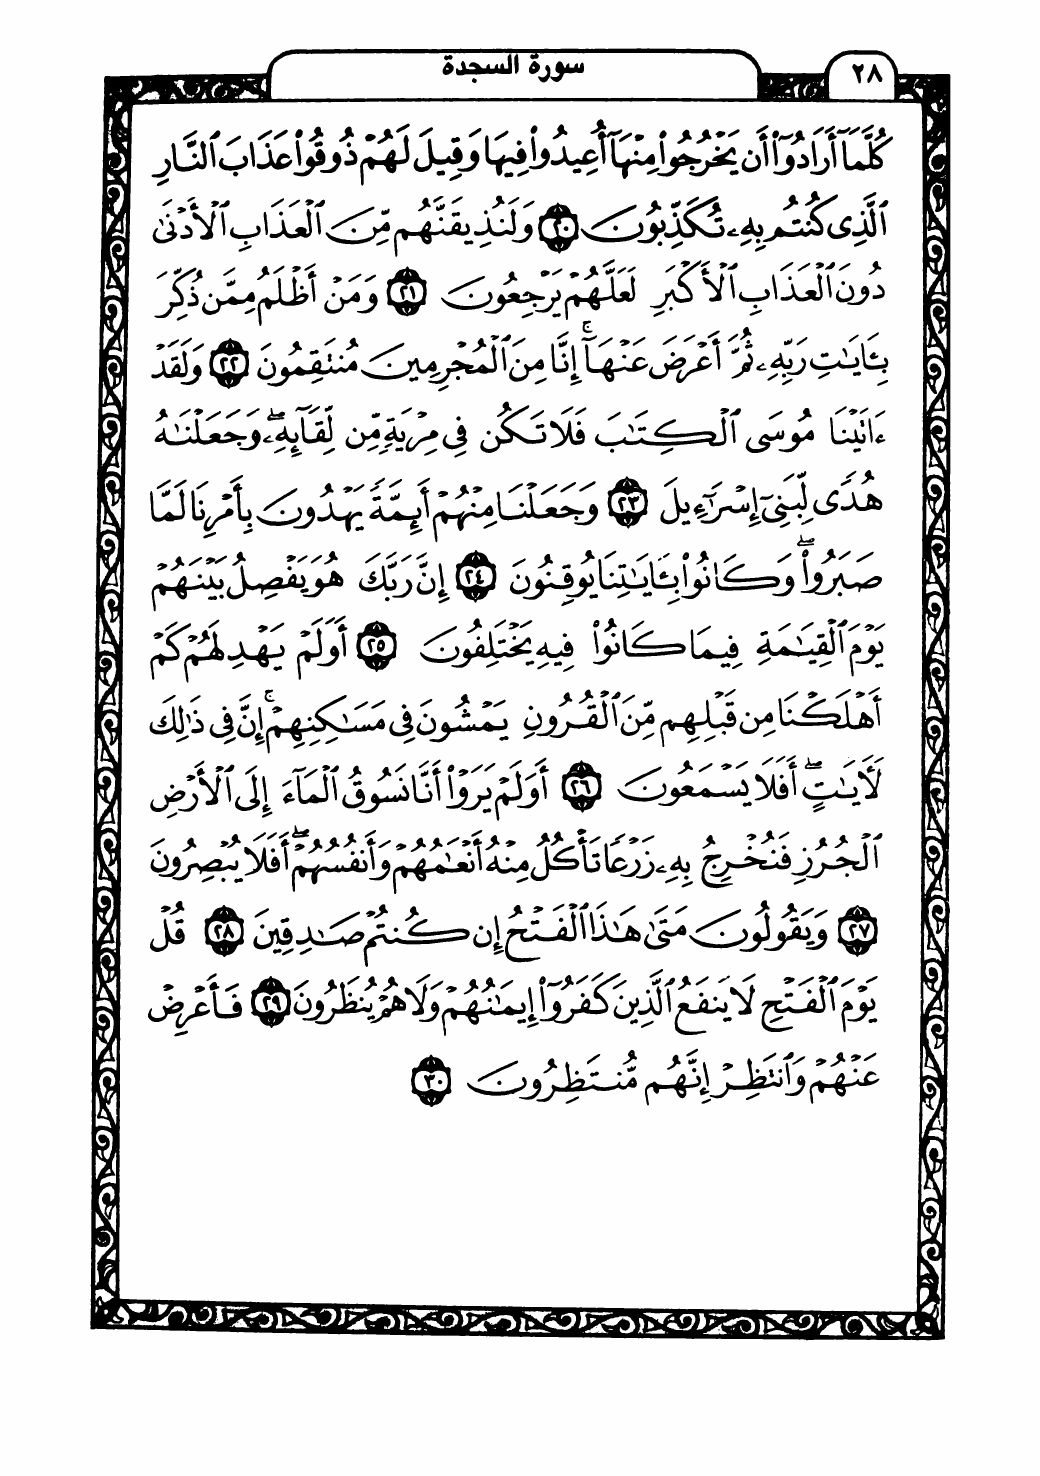 ٢٨
سورة السجدة
كُلَّمَآ أَرَادُوٓا۟ أَن يَخْرُجُوا۟ مِنْهَآ أُعِيدُوا۟ فِيهَا وَقِيلَ لَهُمْ ذُوقُوا۟ عَذَابَ ٱلنَّارِ
ٱلَّذِى كُنتُم بِهِۦ تُكَذِّبُونَ ٢٠ وَلَنُذِيقَنَّهُم مِّنَ ٱلْعَذَابِ ٱلْأَدْنَىٰ
دُونَ ٱلْعَذَابِ ٱلْأَكْبَرِ لَعَلَّهُمْ يَرْجِعُونَ ٢١ وَمَنْ أَظْلَمُ مِمَّن ذُكِّرَ
بِـَٔايَـٰتِ رَبِّهِۦ ثُمَّ أَعْرَضَ عَنْهَآ ۚ إِنَّا مِنَ ٱلْمُجْرِمِينَ مُنتَقِمُونَ ٢٢ وَلَقَدْ
ءَاتَيْنَا مُوسَى ٱلْكِتَـٰبَ فَلَا تَكُن فِى مِرْيَةٍ مِّن لِّقَآئِهِۦ ۖ وَجَعَلْنَـٰهُ
هُدًى لِّبَنِىٓ إِسْرَٰٓءِيلَ ٢٣ وَجَعَلْنَا مِنْهُمْ أَئِمَّةً يَهْدُونَ بِأَمْرِنَا لَمَّا
صَبَرُوا۟ ۖ وَكَانُوا۟ بِـَٔايَـٰتِنَا يُوقِنُونَ ٢٤ إِنَّ رَبَّكَ هُوَ يَفْصِلُ بَيْنَهُمْ
يَوْمَ ٱلْقِيَـٰمَةِ فِيمَا كَانُوا۟ فِيهِ يَخْتَلِفُونَ ٢٥ أَوَلَمْ يَهْدِ لَهُمْ كَمْ
أَهْلَكْنَا مِن قَبْلِهِم مِّنَ ٱلْقُرُونِ يَمْشُونَ فِى مَسَـٰكِنِهِمْ ۚ إِنَّ فِى ذَٰلِكَ
لَـَٔايَـٰتٍ ۖ أَفَلَا يَسْمَعُونَ ٢٦ أَوَلَمْ يَرَوْا۟ أَنَّا نَسُوقُ ٱلْمَآءَ إِلَى ٱلْأَرْضِ
ٱلْجُرُزِ فَنُخْرِجُ بِهِۦ زَرْعًا تَأْكُلُ مِنْهُ أَنْعَـٰمُهُمْ وَأَنفُسُهُمْ ۖ أَفَلَا يُبْصِرُونَ
٢٧ وَيَقُولُونَ مَتَىٰ هَـٰذَا ٱلْفَتْحُ إِن كُنتُمْ صَـٰدِقِينَ ٢٨ قُلْ
يَوْمَ ٱلْفَتْحِ لَا يَنفَعُ ٱلَّذِينَ كَفَرُوٓا۟ إِيمَـٰنُهُمْ وَلَا هُمْ يُنظَرُونَ ٢٩ فَأَعْرِضْ
عَنْهُمْ وَٱنتَظِرْ إِنَّهُم مُّنتَظِرُونَ ٣٠